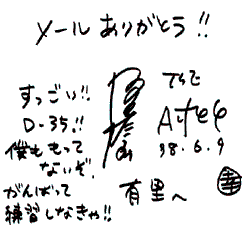 メールありがとう!!
すっごい!!
D-35.!!
僕ももって
ないぞ.
がんばって
練習しなきゃ!!
98.6.9
有里へ